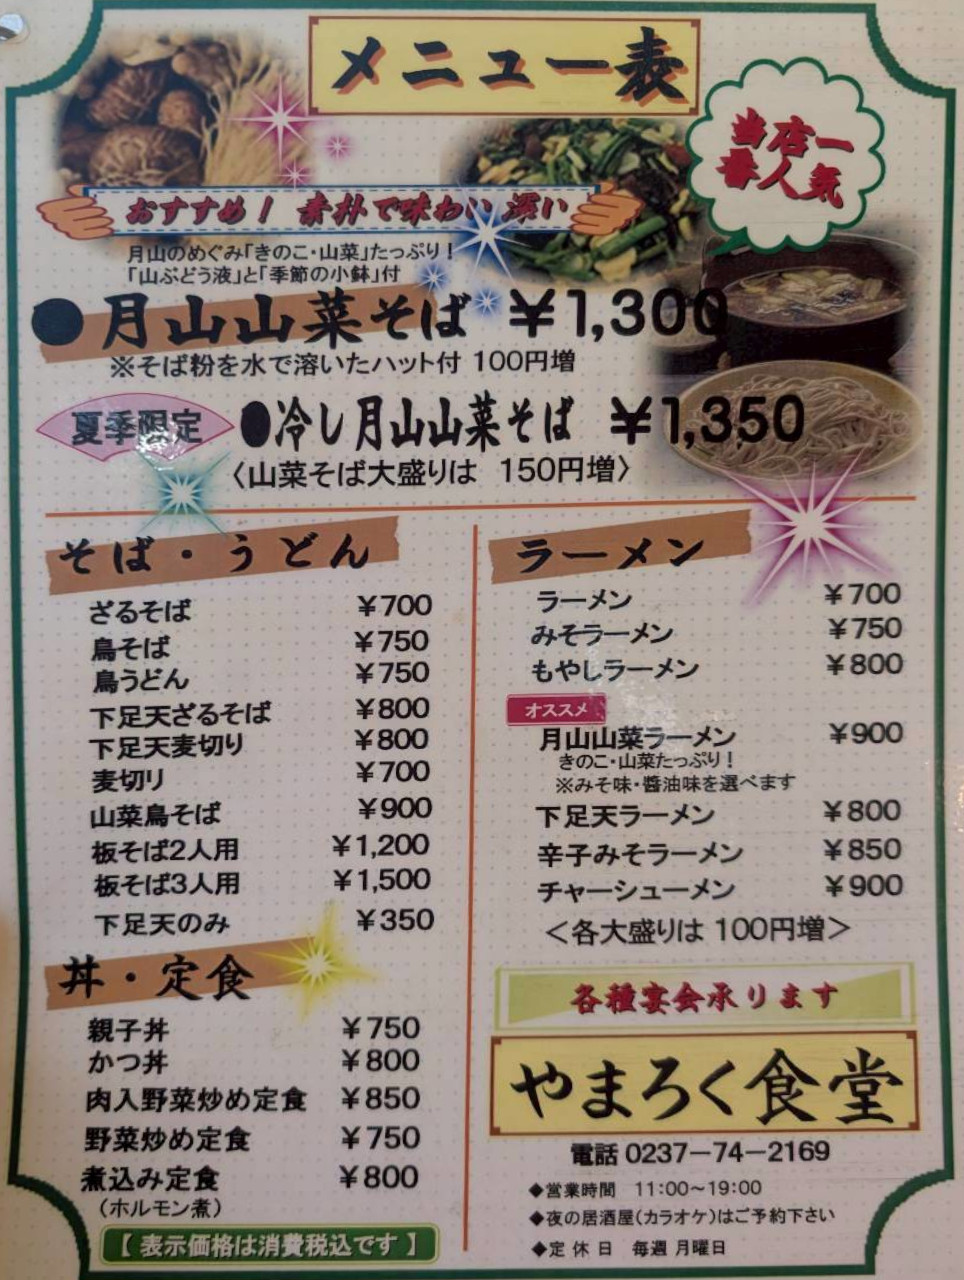 メニュー表
当店一
番人気
おすすめ！ 素朴で味わい深い
月山のめぐみ「きのこ・山菜」たっぷり！
「山ぶどう液」と「季節の小鉢」付
●月山山菜そば ￥1,300
※そば粉を水で溶いたハット付 100円増
夏季限定 ●冷し月山山菜そば ￥1,350
〈山菜そば大盛りは 150円増〉
そば・うどん
ざるそば ￥700
鳥そば ￥750
鳥うどん ￥750
下足天ざるそば ￥800
下足天麦切り ￥800
麦切り ￥700
山菜鳥そば ￥900
板そば2人用 ￥1,200
板そば3人用 ￥1,500
下足天のみ ￥350
丼・定食
親子丼 ￥750
かつ丼 ￥800
肉入野菜炒め定食 ￥850
野菜炒め定食 ￥750
煮込み定食 ￥800
（ホルモン煮）
【 表示価格は消費税込です 】
ラーメン
ラーメン ￥700
みそラーメン ￥750
もやしラーメン ￥800
オススメ
月山山菜ラーメン ￥900
きのこ・山菜たっぷり！
※みそ味・醤油味を選べます
下足天ラーメン ￥800
辛子みそラーメン ￥850
チャーシューメン ￥900
＜各大盛りは 100円増＞
各種宴会承ります
やまろく食堂
電話 0237－74－2169
◆営業時間 11:00～19:00
◆夜の居酒屋（カラオケ）はご予約下さい
◆定休日 毎週 月曜日